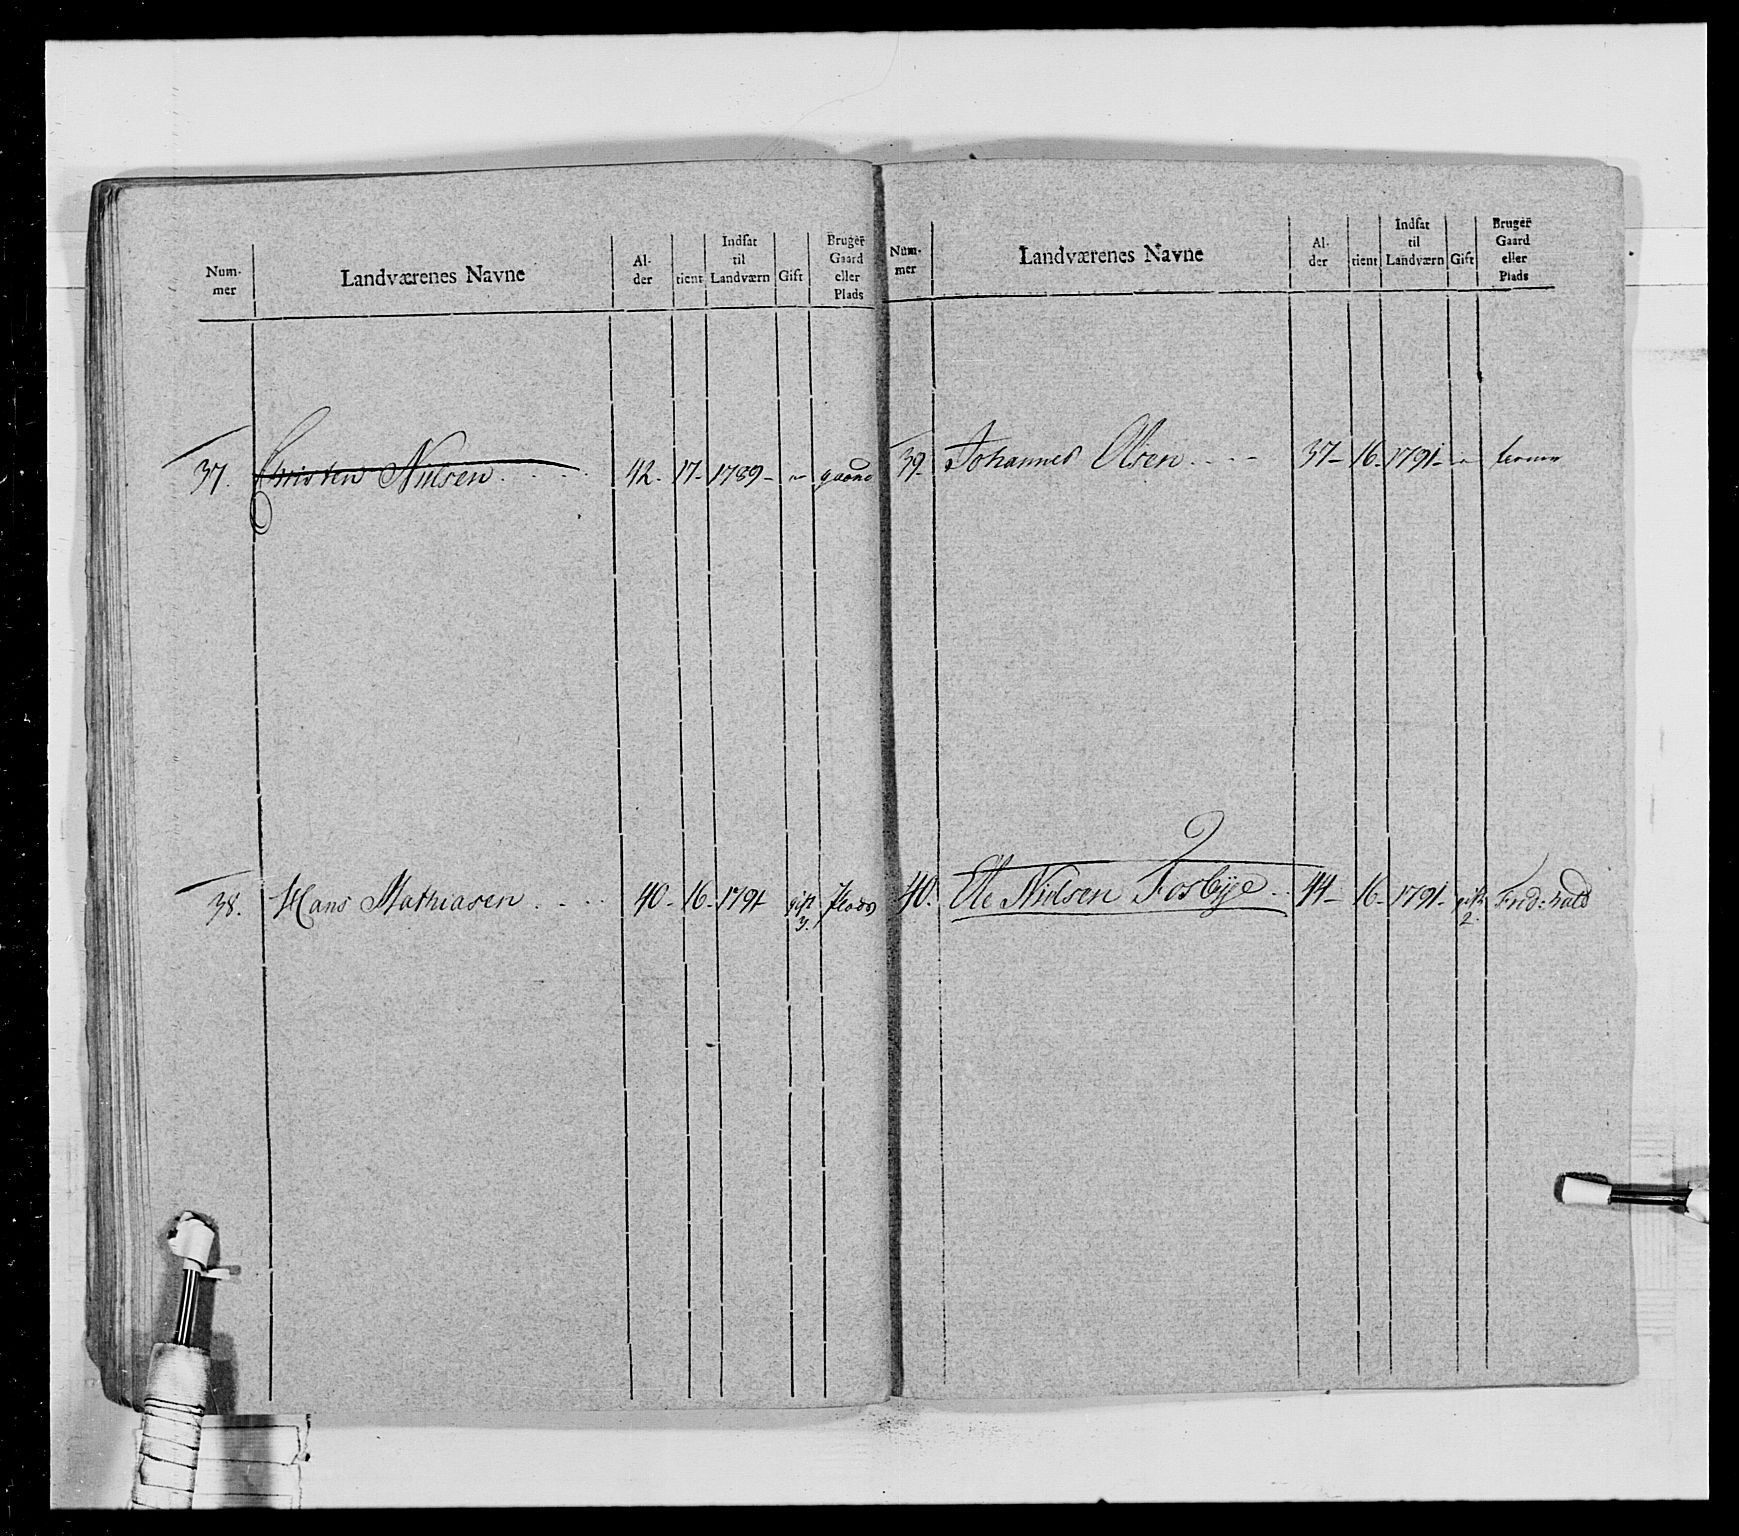 Num-
mer
Landværenes Navne
Al-
der
tient
Indsat
til
Landværn
Gift
Bruger
Gaard
eller
Plads
37. Christen Nielsen 42. 17. 1789 - " gaard
38. Hans Mathiasen 40 - 16 - 1791 gift 3. Plads
Num-
mer
Landværenes Navne
Al-
der
tient
Indsat
til
Landværn
Gift
Bruger
Gaard
eller
Plads
39. Johannes Olsen 37 - 16 - 1791 - "
40. Ole Nielsen Fosbÿe 44 - 16 - 1791 - gift 2. Frid:hald